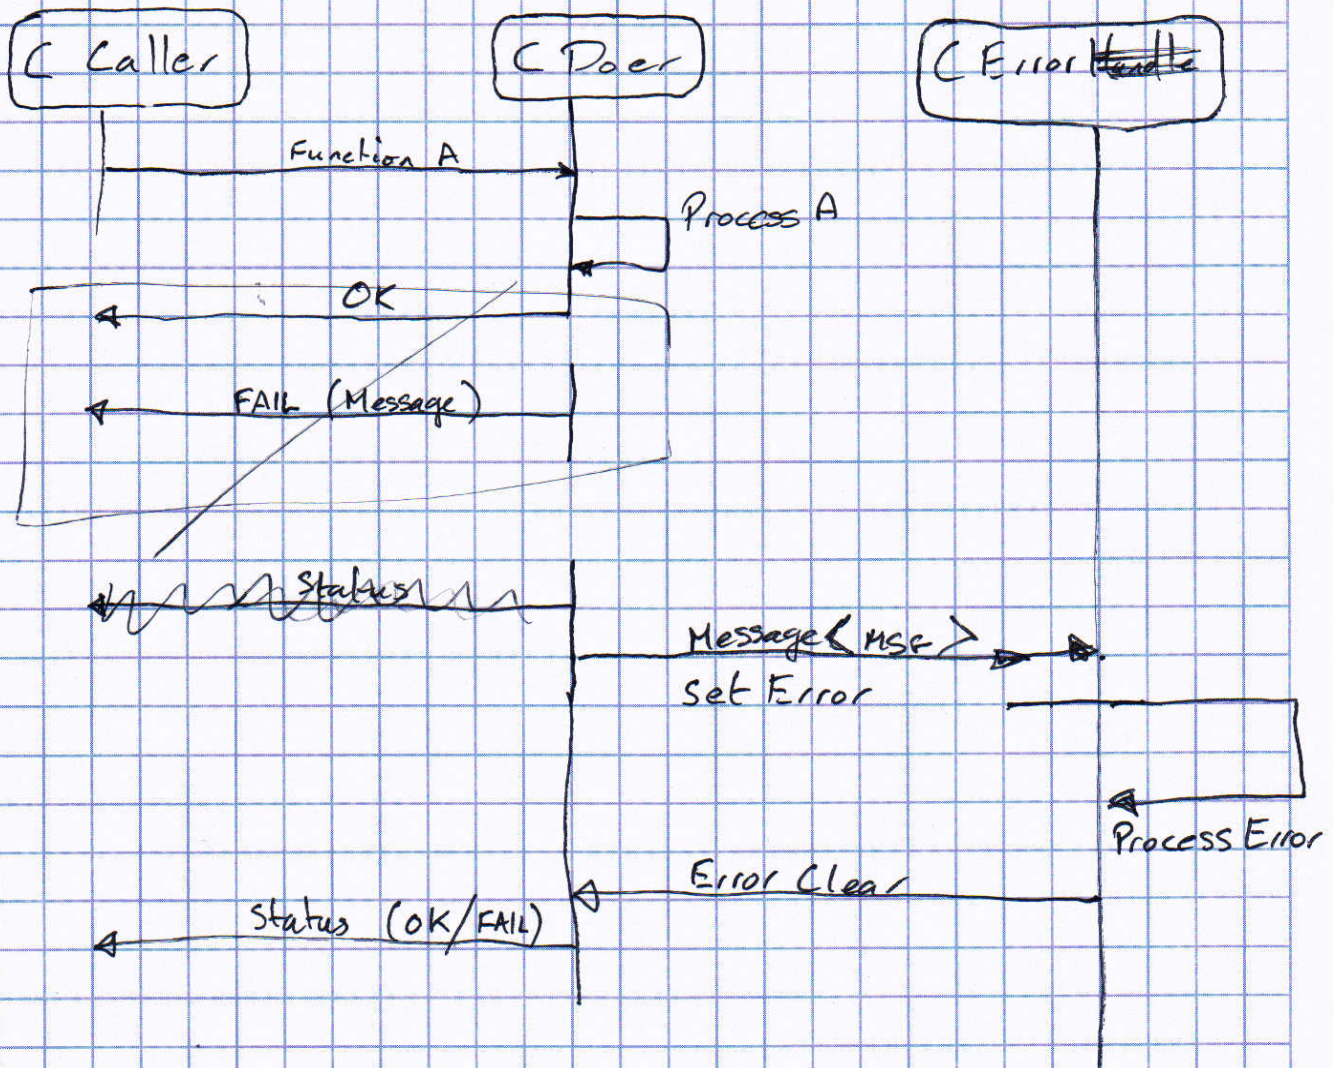 C Caller
C Doer
C Error Handle
Function A
Process A
OK
FAIL (Message)
Status
Message < MSG >
Set Error
Process Error
Error Clear
Status (OK/FAIL)